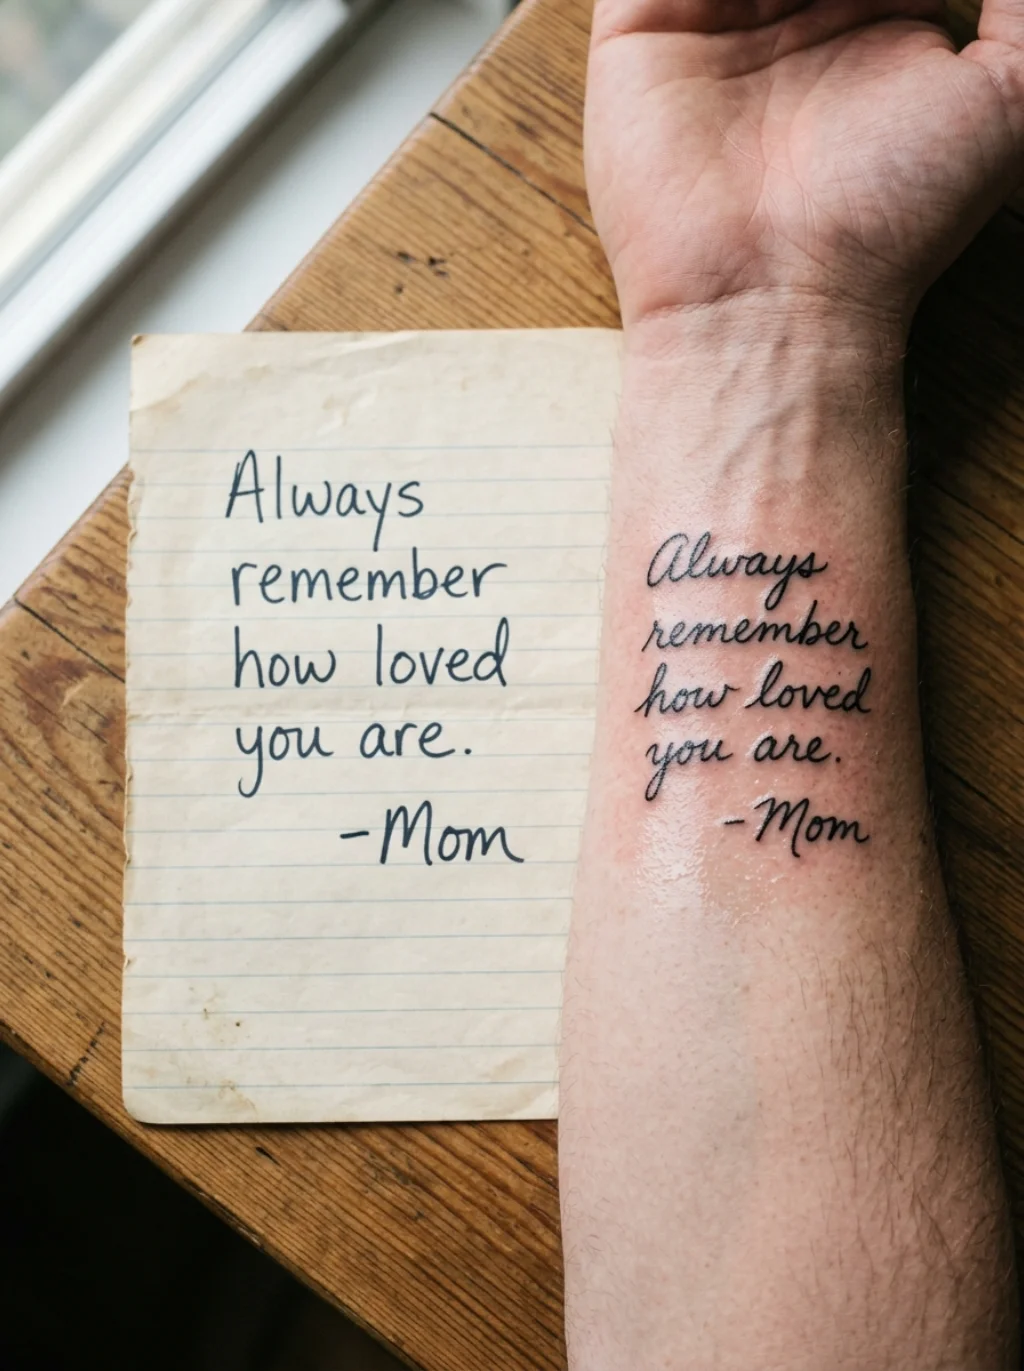 Always
remember
how loved
you are.
-Mom
Always
remember
how loved
you are.
-Mom